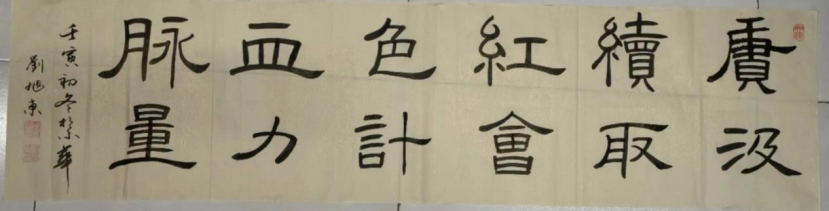 賡續紅色血脉
汲取會計力量
壬寅初冬於華
劉旭東